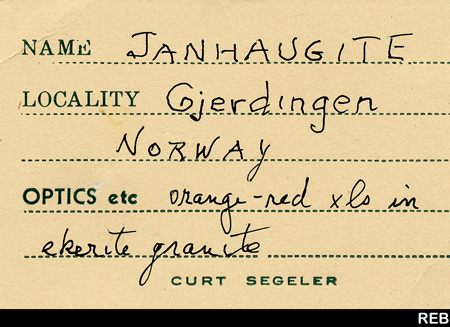 NAME JANHAUGITE
LOCALITY Gjerdingen
NORWAY
OPTICS etc orange-red xls in
ekerite granite
CURT SEGELER
REB